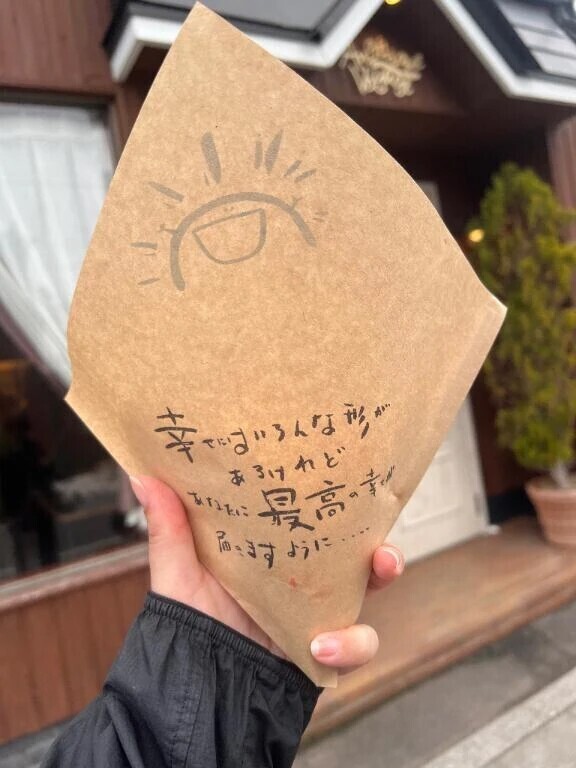 幸せにはいろんな形が
あるけれど
あなたに最高の幸せが
届きますように.....